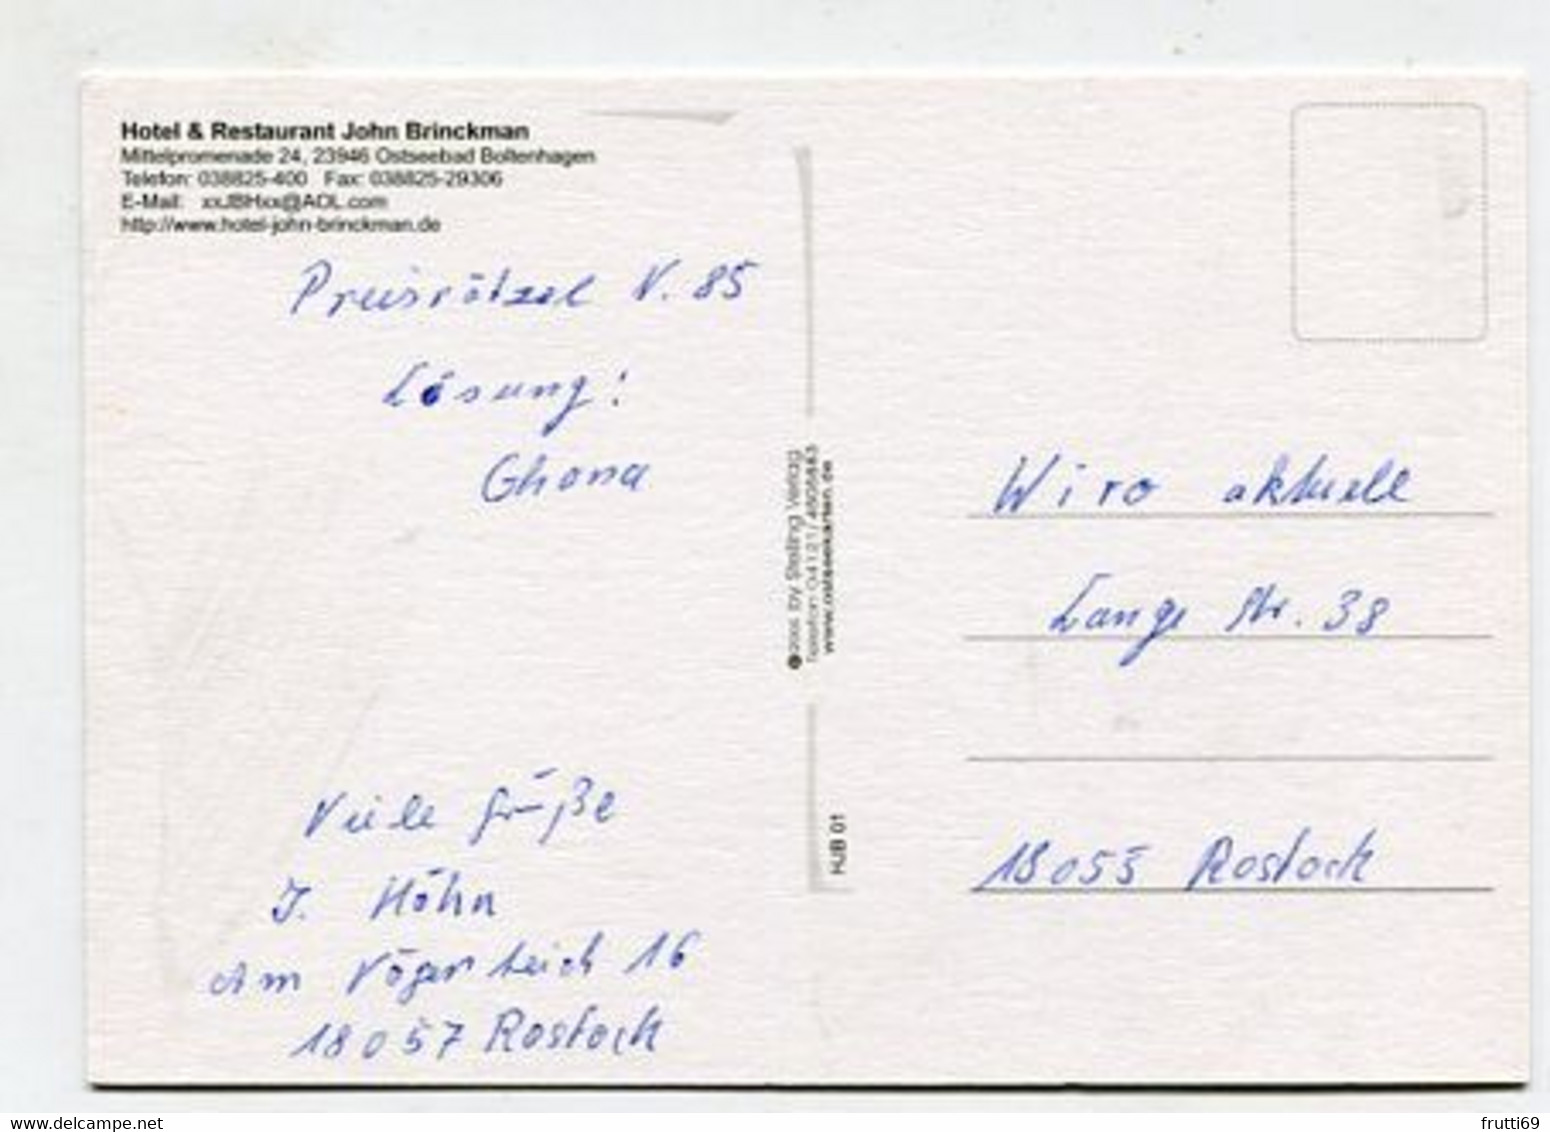 Hotel & Restaurant John Brinckman
Mittelpromenade 24, 23946 Ostseebad Boltenhagen
Telefon: 038825-400 Fax: 038825-29306
E-Mail: xxJBHxx@AOL.com
http://www.hotel-john-brinckman.de
Preisrätzel V. 85
Lösung:
Ghana
Viele Grüße
J. Höhn
Am Vögenteich 16
18057 Rostock
by Stelling Verlag
www.ostseekarten.de
HJB 01
Wiro aktuell
Lange Str. 38
18055 Rostock
delcampe.net
frutti69